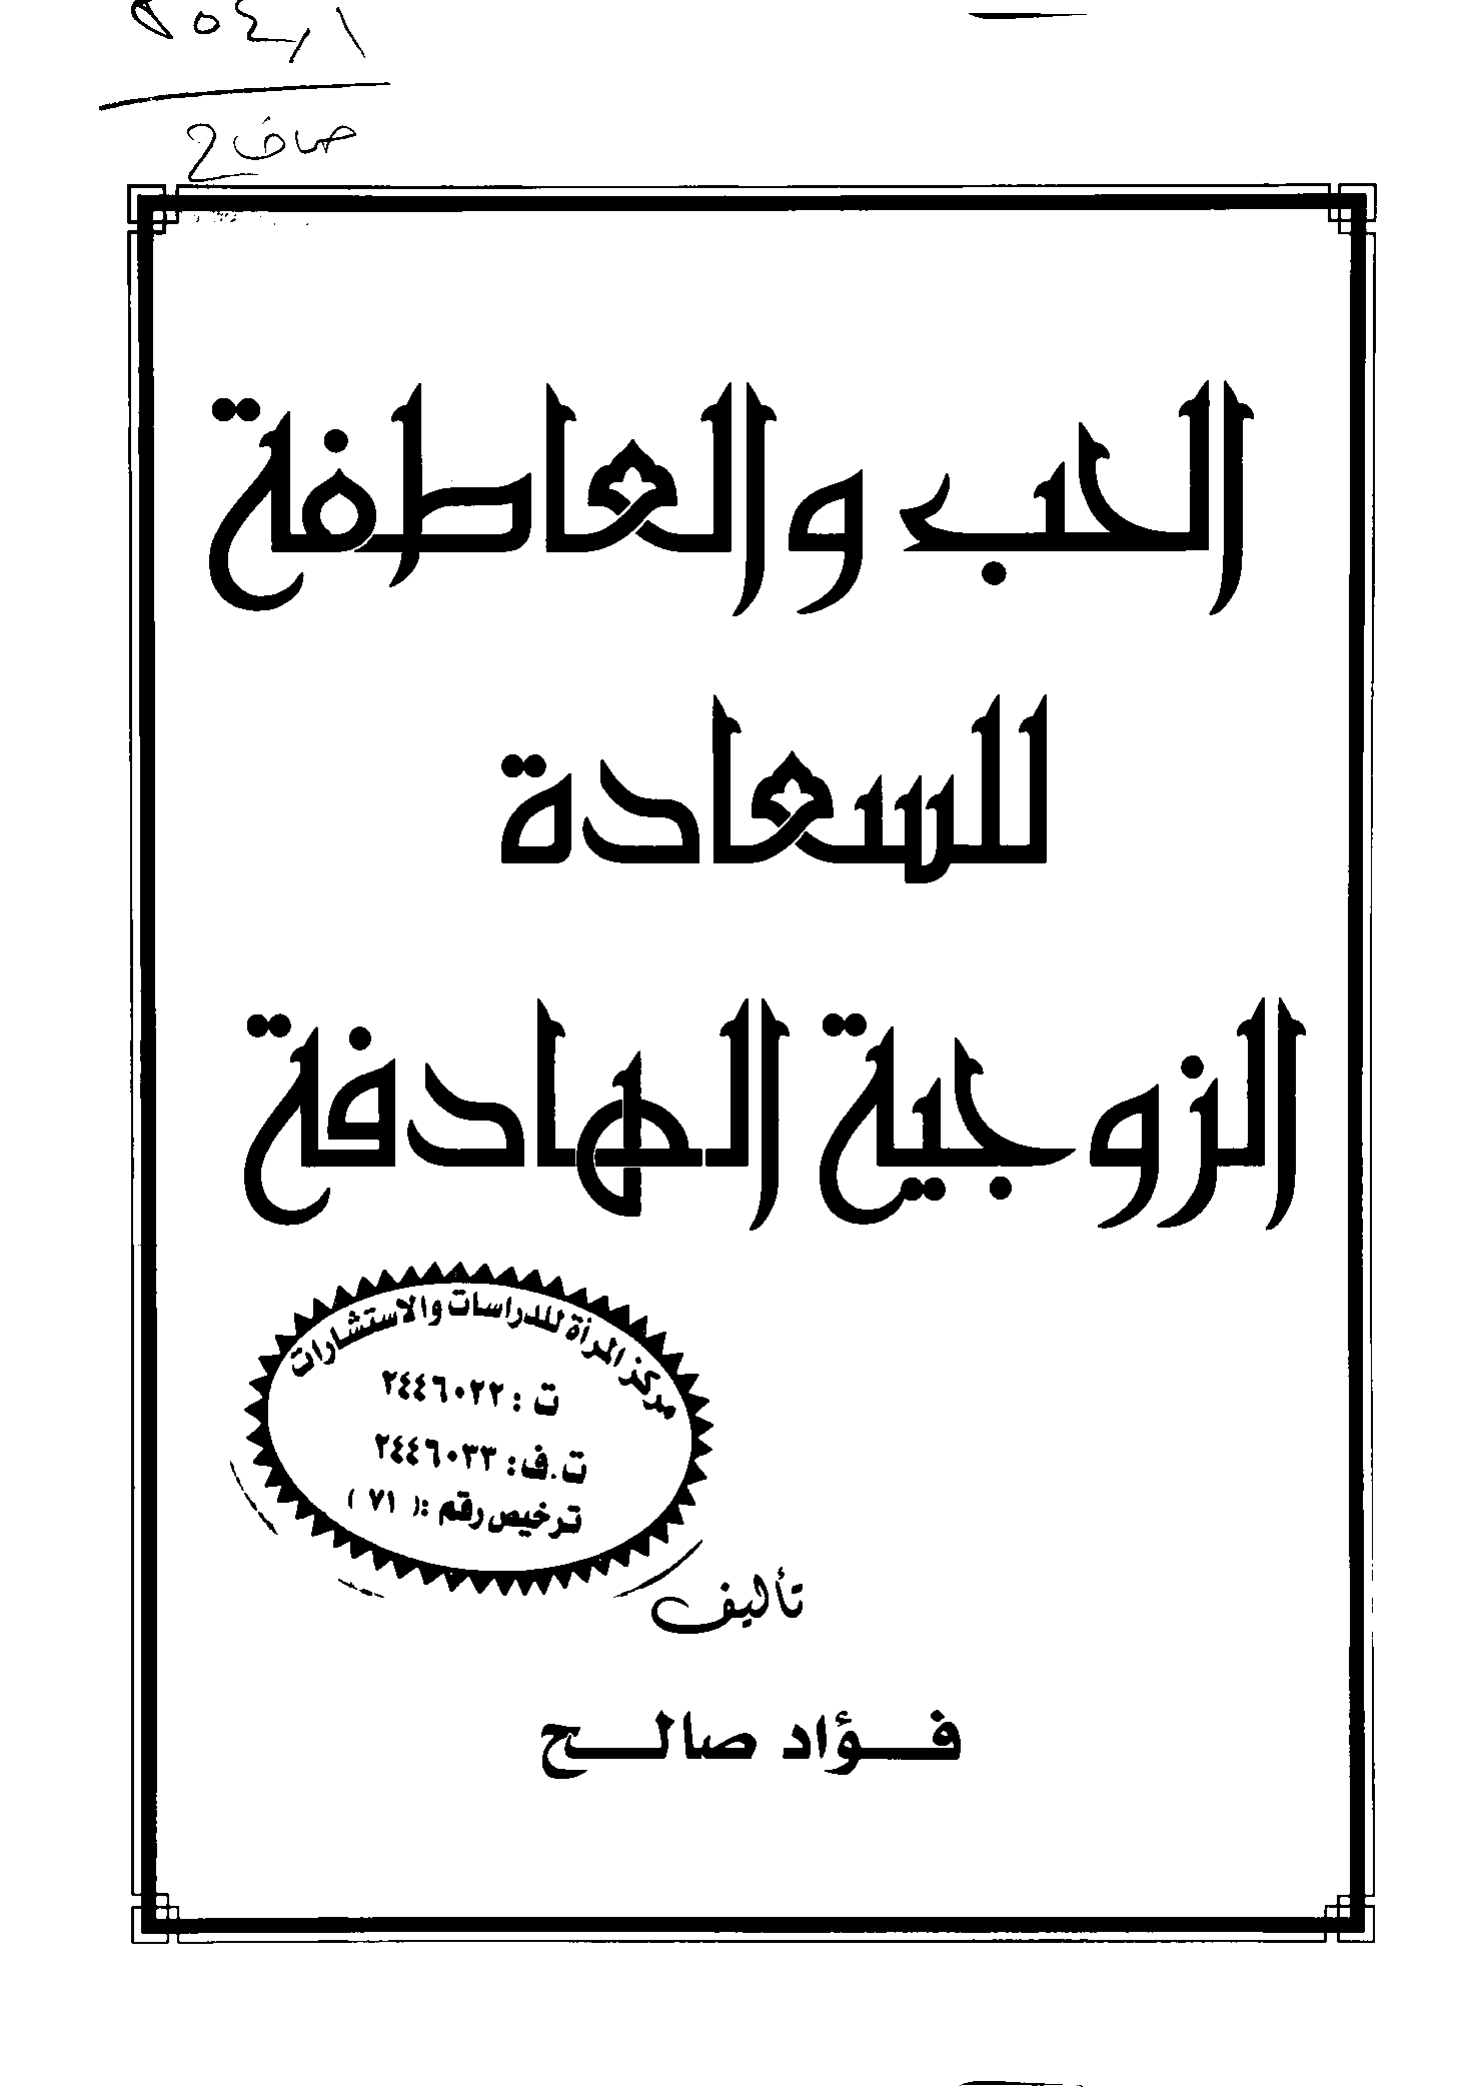 الحب والعاطفة
للسعادة
الزوجية الهادفة
مركز المرأة للدراسات والاستشارات
ت : ٢٤٤٦٠٢٢
ت.ف: ٢٤٤٦٠٣٣
ترخيص رقم :( ٧١ )
تأليف
فؤاد صالح